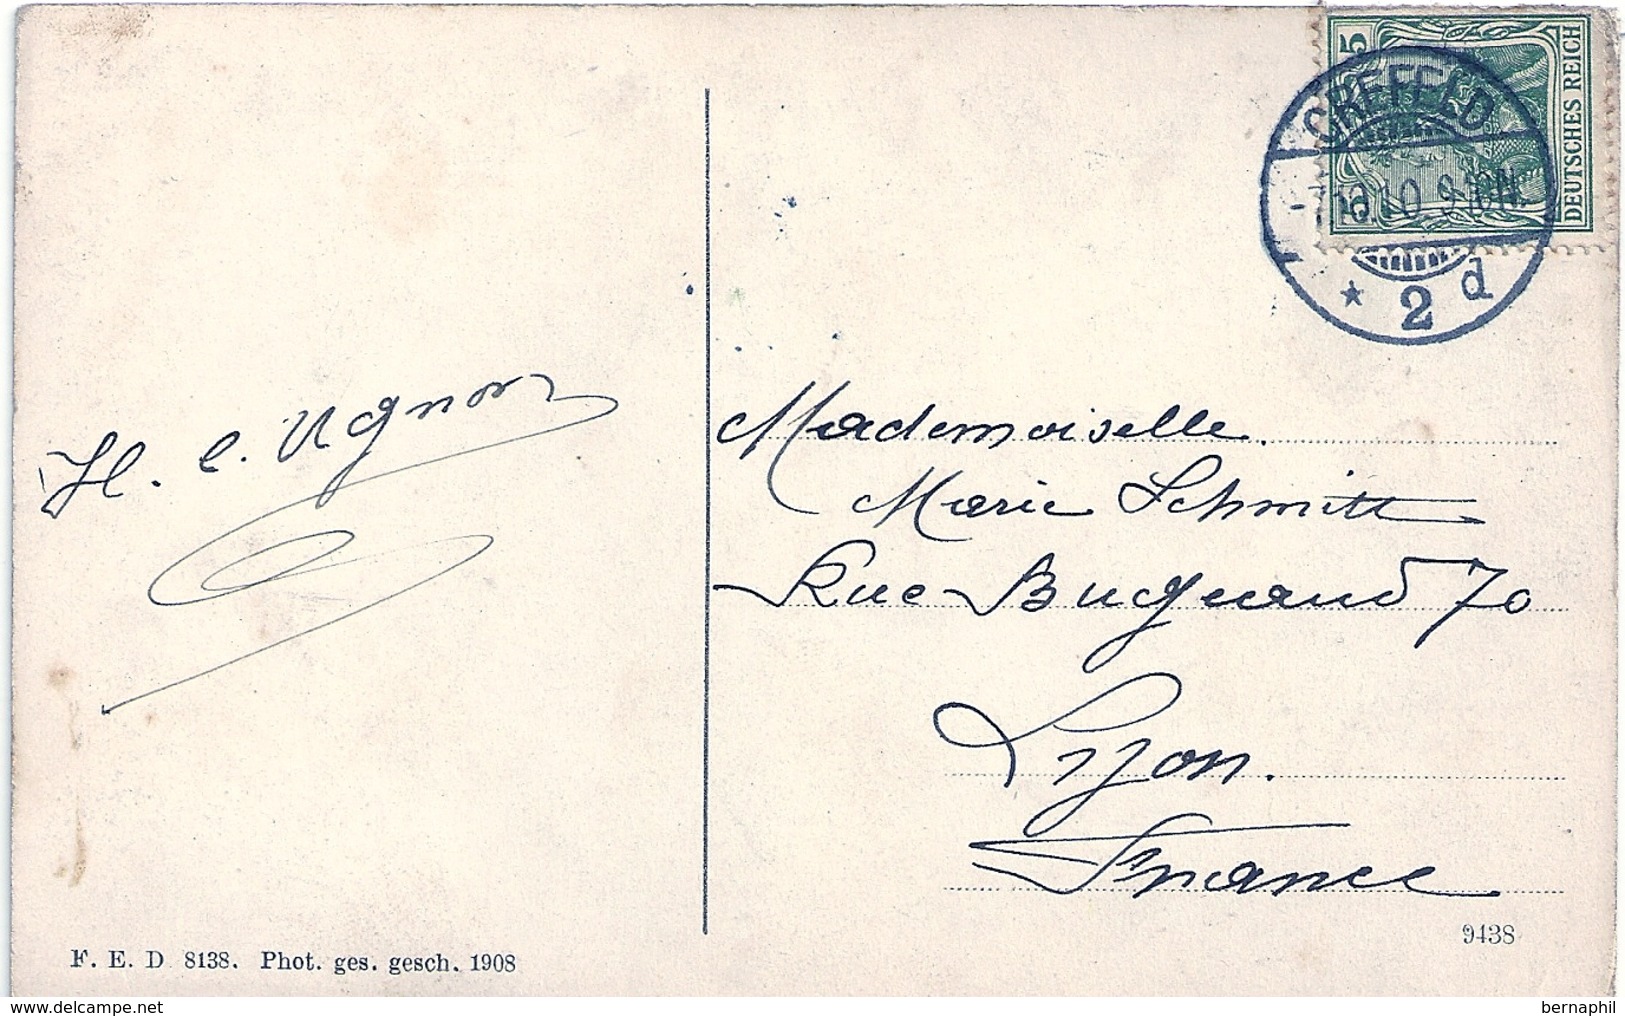 5
DEUTSCHES REICH
CREFELD
10.10 9-10N.
* 2 d
H. C. Ugnon
Mademoiselle
Marie Schmitt
Rue Bugeaud 70
Lyon.
France
9438
F. E. D 8138. Phot. ges. gesch. 1908
delcampe.net
bernaphil